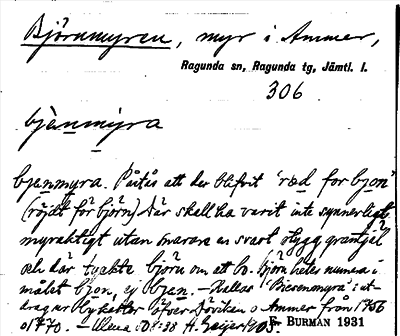 Björnmyren, myr i Ammer,
Ragunda sn, Ragunda tg, Jämtl. l.
306
bjenmyra
bjenmyra. Påstås att der blifvit 'ræd for bjon'
(röjdt för björn) Där skall ha varit inte synnerligt
myraktigt utan snarare en svart stygg grantjäl
och där tyckte björn om att bo. Björn heter numera i
målet bjon, ej bjen. – Kallas 'Biesenmyra' i ut-
drag ur öfver Döviken o Ammer från 1756
o 1770. –
E. BURMAN 1931